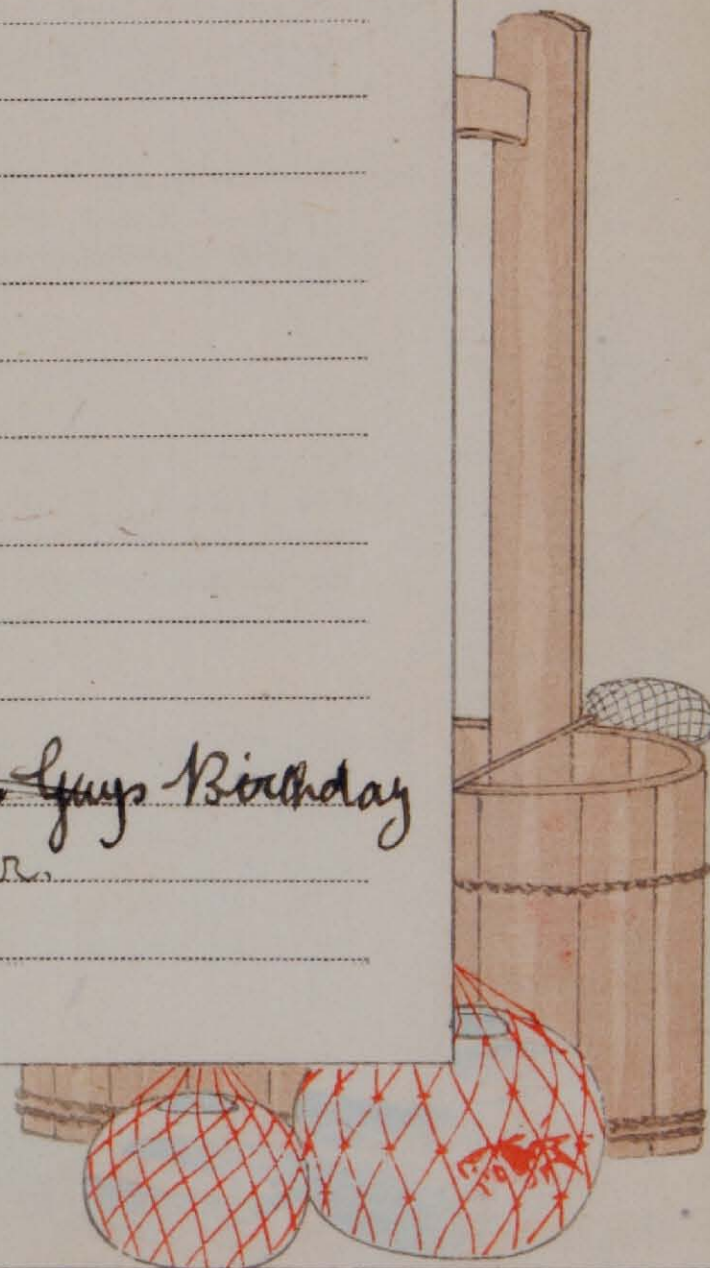 Guys Birthday
r.